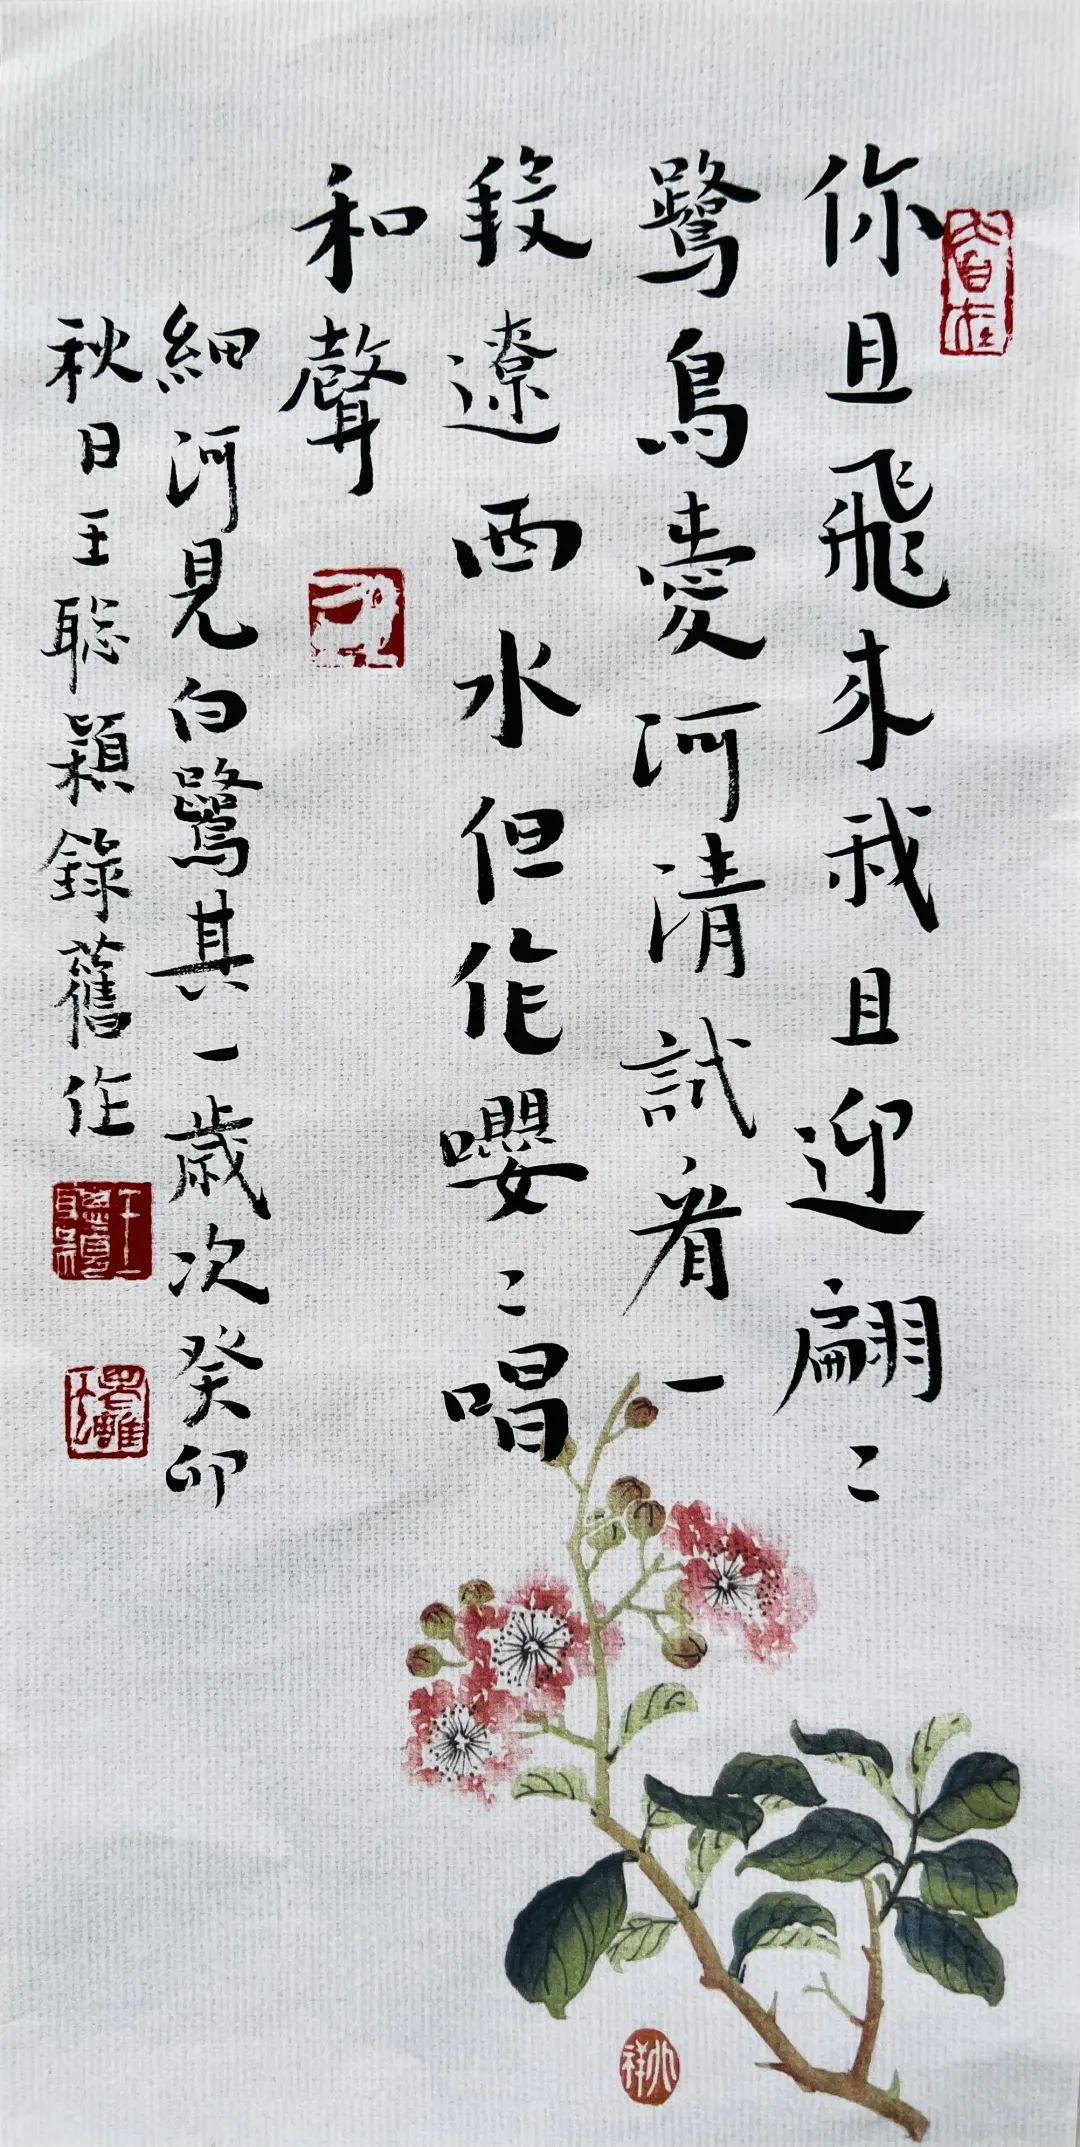 你且飛來我且迎翩〻
鷺鳥愛河清試看一
段遼西水但作嚶〻唱
和聲
細河見白鷺其一歲次癸卯
秋日王聰穎錄舊作